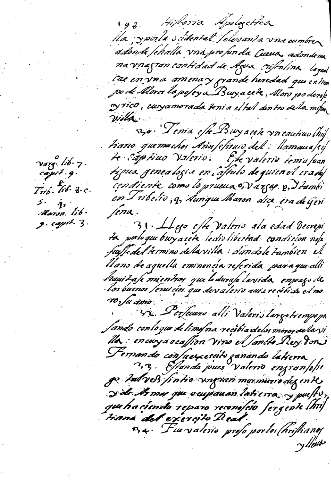 192 Historia Apologetica
lla, y por la ocidental se levanta una cumbre
adonde se halla una profunda Cueva adonde ma
na un gran cantidad de Agua cristalina la qual
cae en una amena y grande heredad que en tiem
po de Moros la poseya Buyacete, Moro poderoso
y rico, cuya morada tenia el tal dentro de la misma
villa.
30. Tenia este Buyacete un cautivo Chris
tiano que mucho del: llamavase es
te captivo Valerio. Este Valerio tenia su an
tigua genealogia en de quien el era de
cendiente como lo prueva Vargas, y tambi
en Tribelio, Aunque Maron dice era de
sena.
Varg. lib. 7.
capit. 9.
Trib. lib. 3. c.
5.
Maron. lib.
9. capit. 3.
31. Llego este Valerio a la edad decrepi
ta por lo que Buyacete le dio libertad condicion no sa
liesse del termino de la villa: donde le también el
llano de aquella eminencia referida para que alli
habitase mientras que le durase la vida, en pago de
los buenos servicios que de Valerio avia recibido el mo
ro, su amo.
32. Perseveró alli Valerio largo tiempo pa
sando con lo que de limosna recibia de los moros de la vi
lla: en cuya occasion vino el santo Rey Don
Fernando con su exercito ganando la tierra
33. Estando pues Valerio en
tal vió sintio un gran mormurio de gente
y de Armas que ocupavan la tierra, y puesto
que haciendo reparo reconosció ser gente Chris
tiana del exercito Real.
34. Fue Valerio preso por los Christianos
y lleva